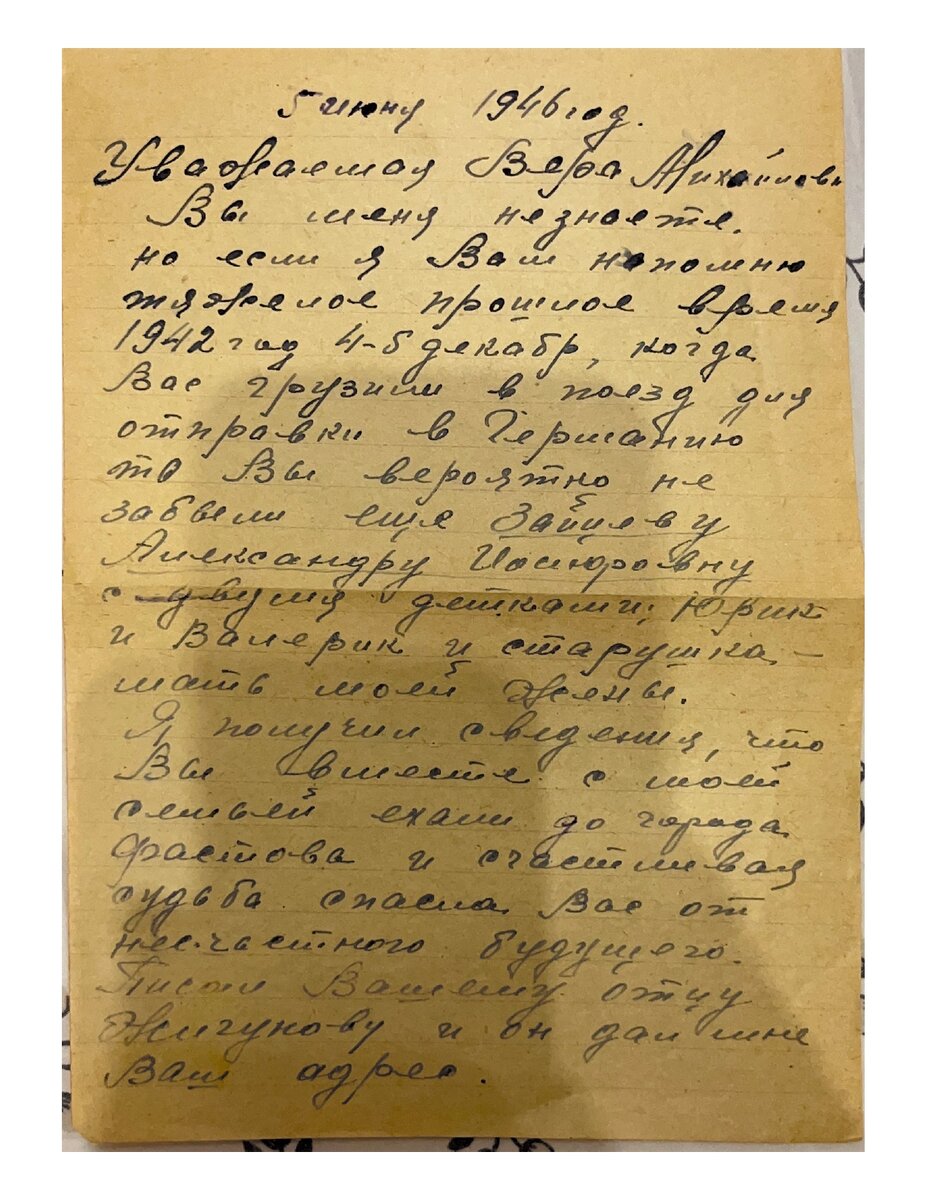 5 июня 1946 год.
Уважаемая Вера Михайловн
Вы меня незнаете.
но если я Вам напомню
тяжелое прошлое время
1942 год 4-5 декабр, когда
Вас грузили в поезд для
отправки в Германию
то Вы вероятно не
забыли еще Зайцеву
Александру Иосифовну
с двумя детками; Юрик
и Валерик и старушка –
мать моей жены.
Я получил сведения, что
Вы вместе с моей
семьей ехали до города
Фастова и счастливая
судьба спасла Вас от
несчастного будущего.
Писал Вашему отцу
Жигунову и он дал мне
Ваш адрес.